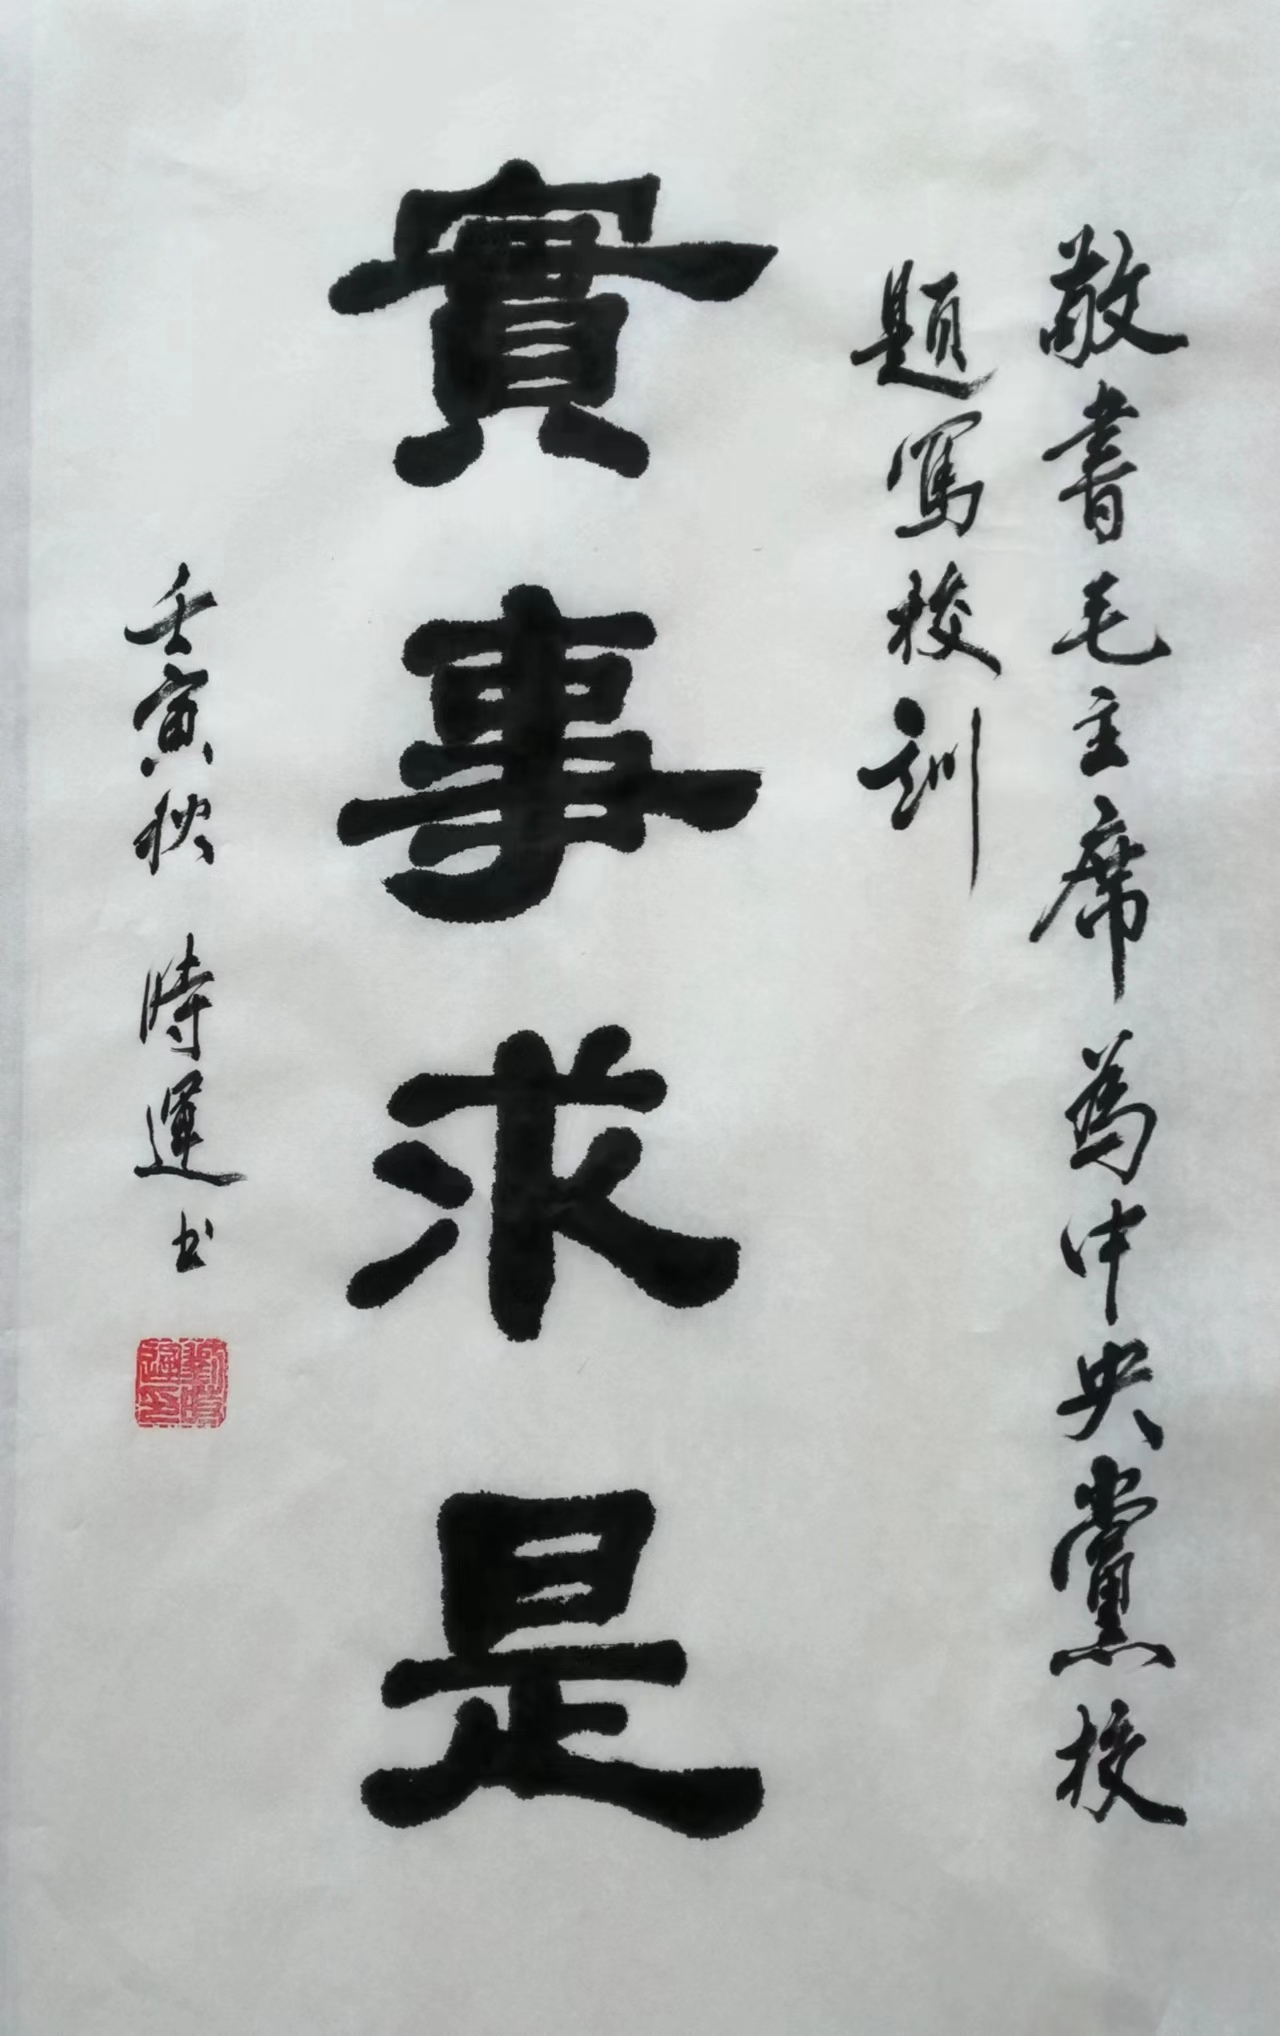 敬書毛主席為中央黨校
題寫校訓
實事求是
壬寅秋 時運书